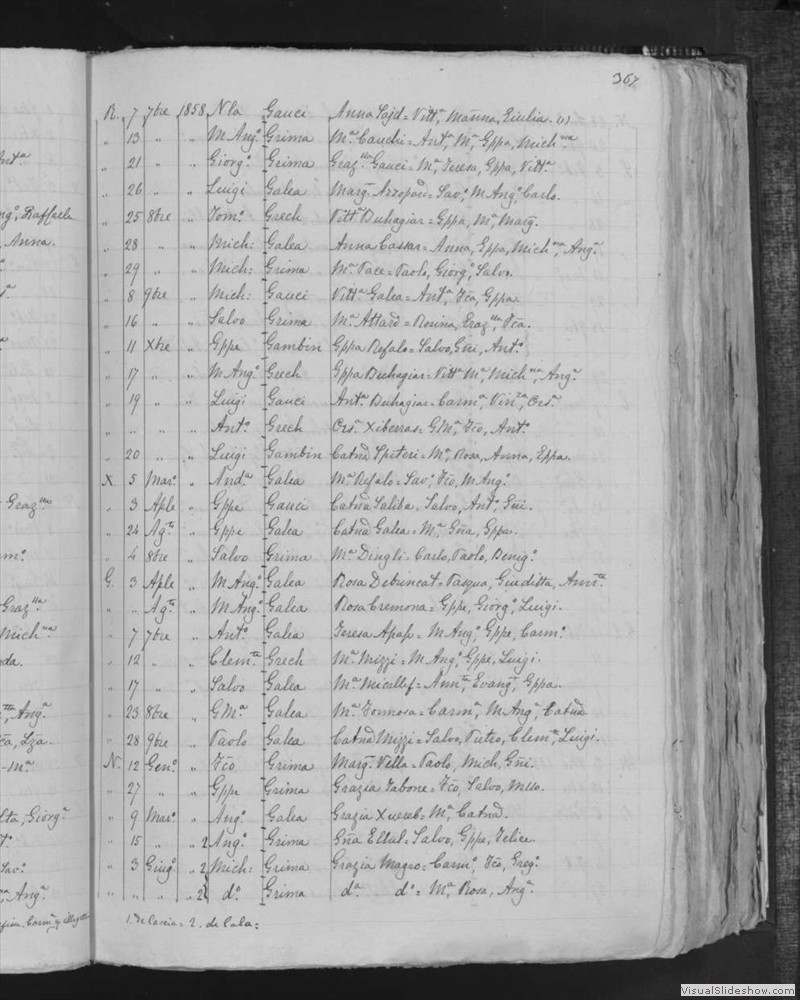 367
R. 7 7bre 1858 Nla Gauci Anna Sajd = Vitta, Marina, Giulia. (1)
" 13 " " M Ango Grima Ma Cauchi = Anta, Ma, Gppa, Michna
" 21 " " Giorgo Grima Grazlla Gauci = Ma, Teresa, Gppa, Vitta
" 26 " " Luigi Galea Marg. Azzopardi = Savo, M Ango, Carlo.
" 25 8bre " Tomo Grech Vitta Buhagiar = Gppa, Ma, Marg.
" 28 " " Mich: Galea Anna Cassar = Anna, Gppa, Michna, Anga
" 29 " " Mich: Grima Ma Pace = Paolo, Giorgo, Salvo.
" 8 9bre " Mich: Gauci Vitta Galea = Anta, Fca, Gppa.
" 16 " " Salvo Grima Ma Attard = Rosina, Grazlla, Fca.
" 11 Xbre " Gppe Gambin Gppa Refalo = Salvo, Gni, Anto
" 17 " " M Ango Grech Gppa Buhagiar = Vitta, Ma, Michna, Anga
" 19 " " Luigi Gauci Anta Buhagiar = Carma, Vinza, Orsa
" " " " Anto Grech Orsa Xiberras = GMa, Fco, Anto
" 20 " " Luigi Gambin Catna Spiteri = Ma, Rosa, Anna, Gppa.
X 5 Maro " Anda Galea Ma Refalo = Savo, Fco, M Ango
" 3 Aple " Gppe Gauci Catna Saliba = Salvo, Anto, Gni.
" 24 Agto " Gppe Galea Catna Galea = Ma, Gna, Gppa.
" 4 8bre " Salvo Grima Ma Dingli = Carlo, Paolo, Benigo
G. 3 Aple " M Ango Galea Rosa Debincat = Pasqua, Giuditta, Annta
" " Agto " M Ango Galea Rosa Cremona = Gppe, Giorgo, Luigi.
" 7 7bre " Anto Galea Teresa Apap = M Ango, Gppe, Carmo
" 12 " " Clemte Grech Ma Mizzi = M Ango, Gppe, Luigi.
" 17 " " Salvo Galea Ma Micallef = Annta, Evangta, Gppa.
" 23 8bre " GMa Galea Ma Formosa = Carma, M Anga, Catna
" 28 9bre " Paolo Galea Catna Mizzi = Salvo, Pietro, Clemte, Luigi.
N. 12 Geno " Fco Grima Marg. Vella = Paolo, Mich, Gni.
" 27 " " Gppe Grima Grazia Tabone = Fco, Salvo,
" 9 Maro " Ango Galea Grazia Xuereb = Ma, Catna.
" 15 " " 2 Ango Grima Gna Ellul = Salvo, Gppe, Felice.
" 3 Giugo " 2 Mich: Grima Grazia Magro = Carmo, Fco, Grego
" " " " 2 do Grima da do = Ma Rosa, Anga
1. de Caccia = 2. de Cala =